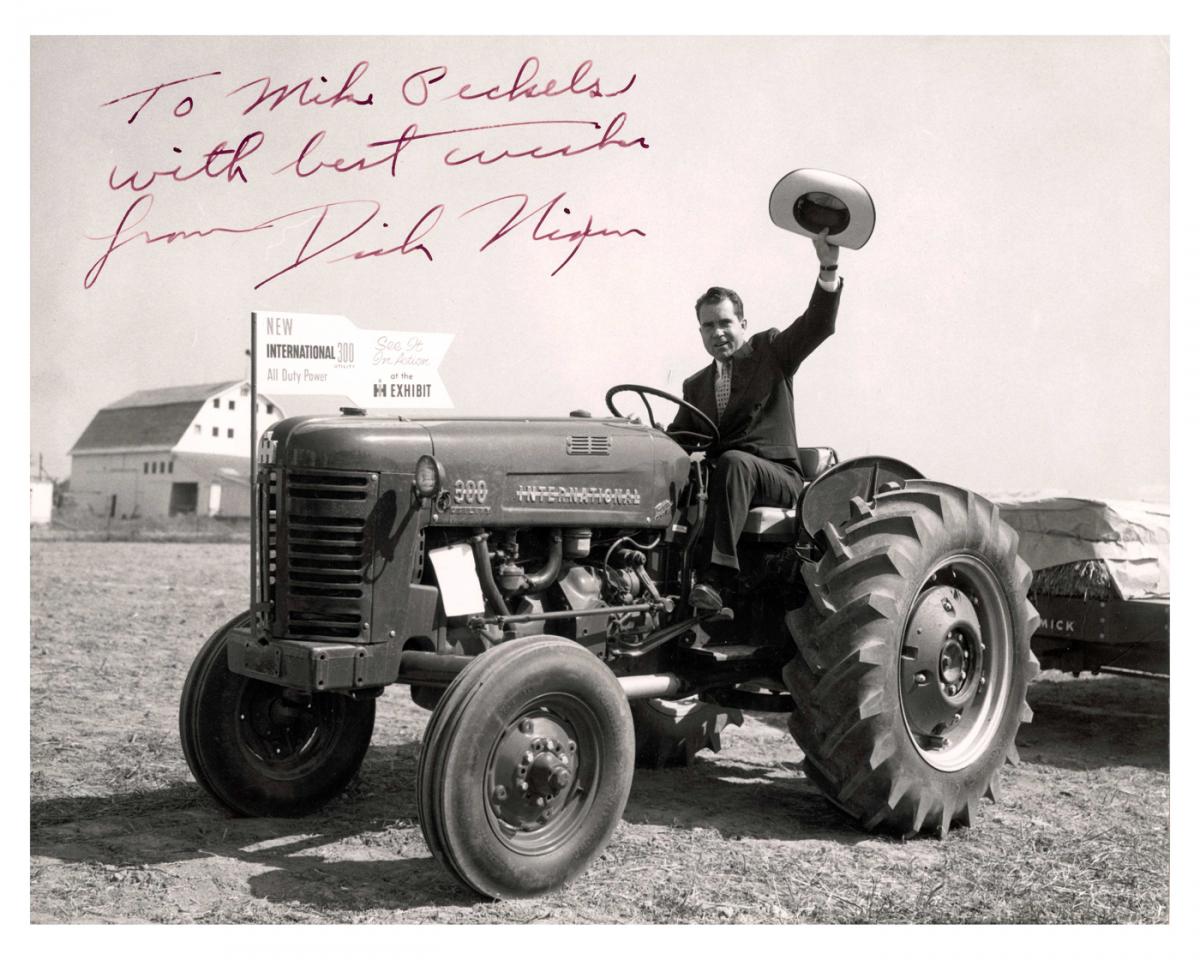 To Mike Peckels
with best wishes
from Dick Nixon
NEW
INTERNATIONAL 300
UTILITY
All Duty Power
See It
In Action
at the
IH EXHIBIT
300
UTILITY
INTERNATIONAL
MICK